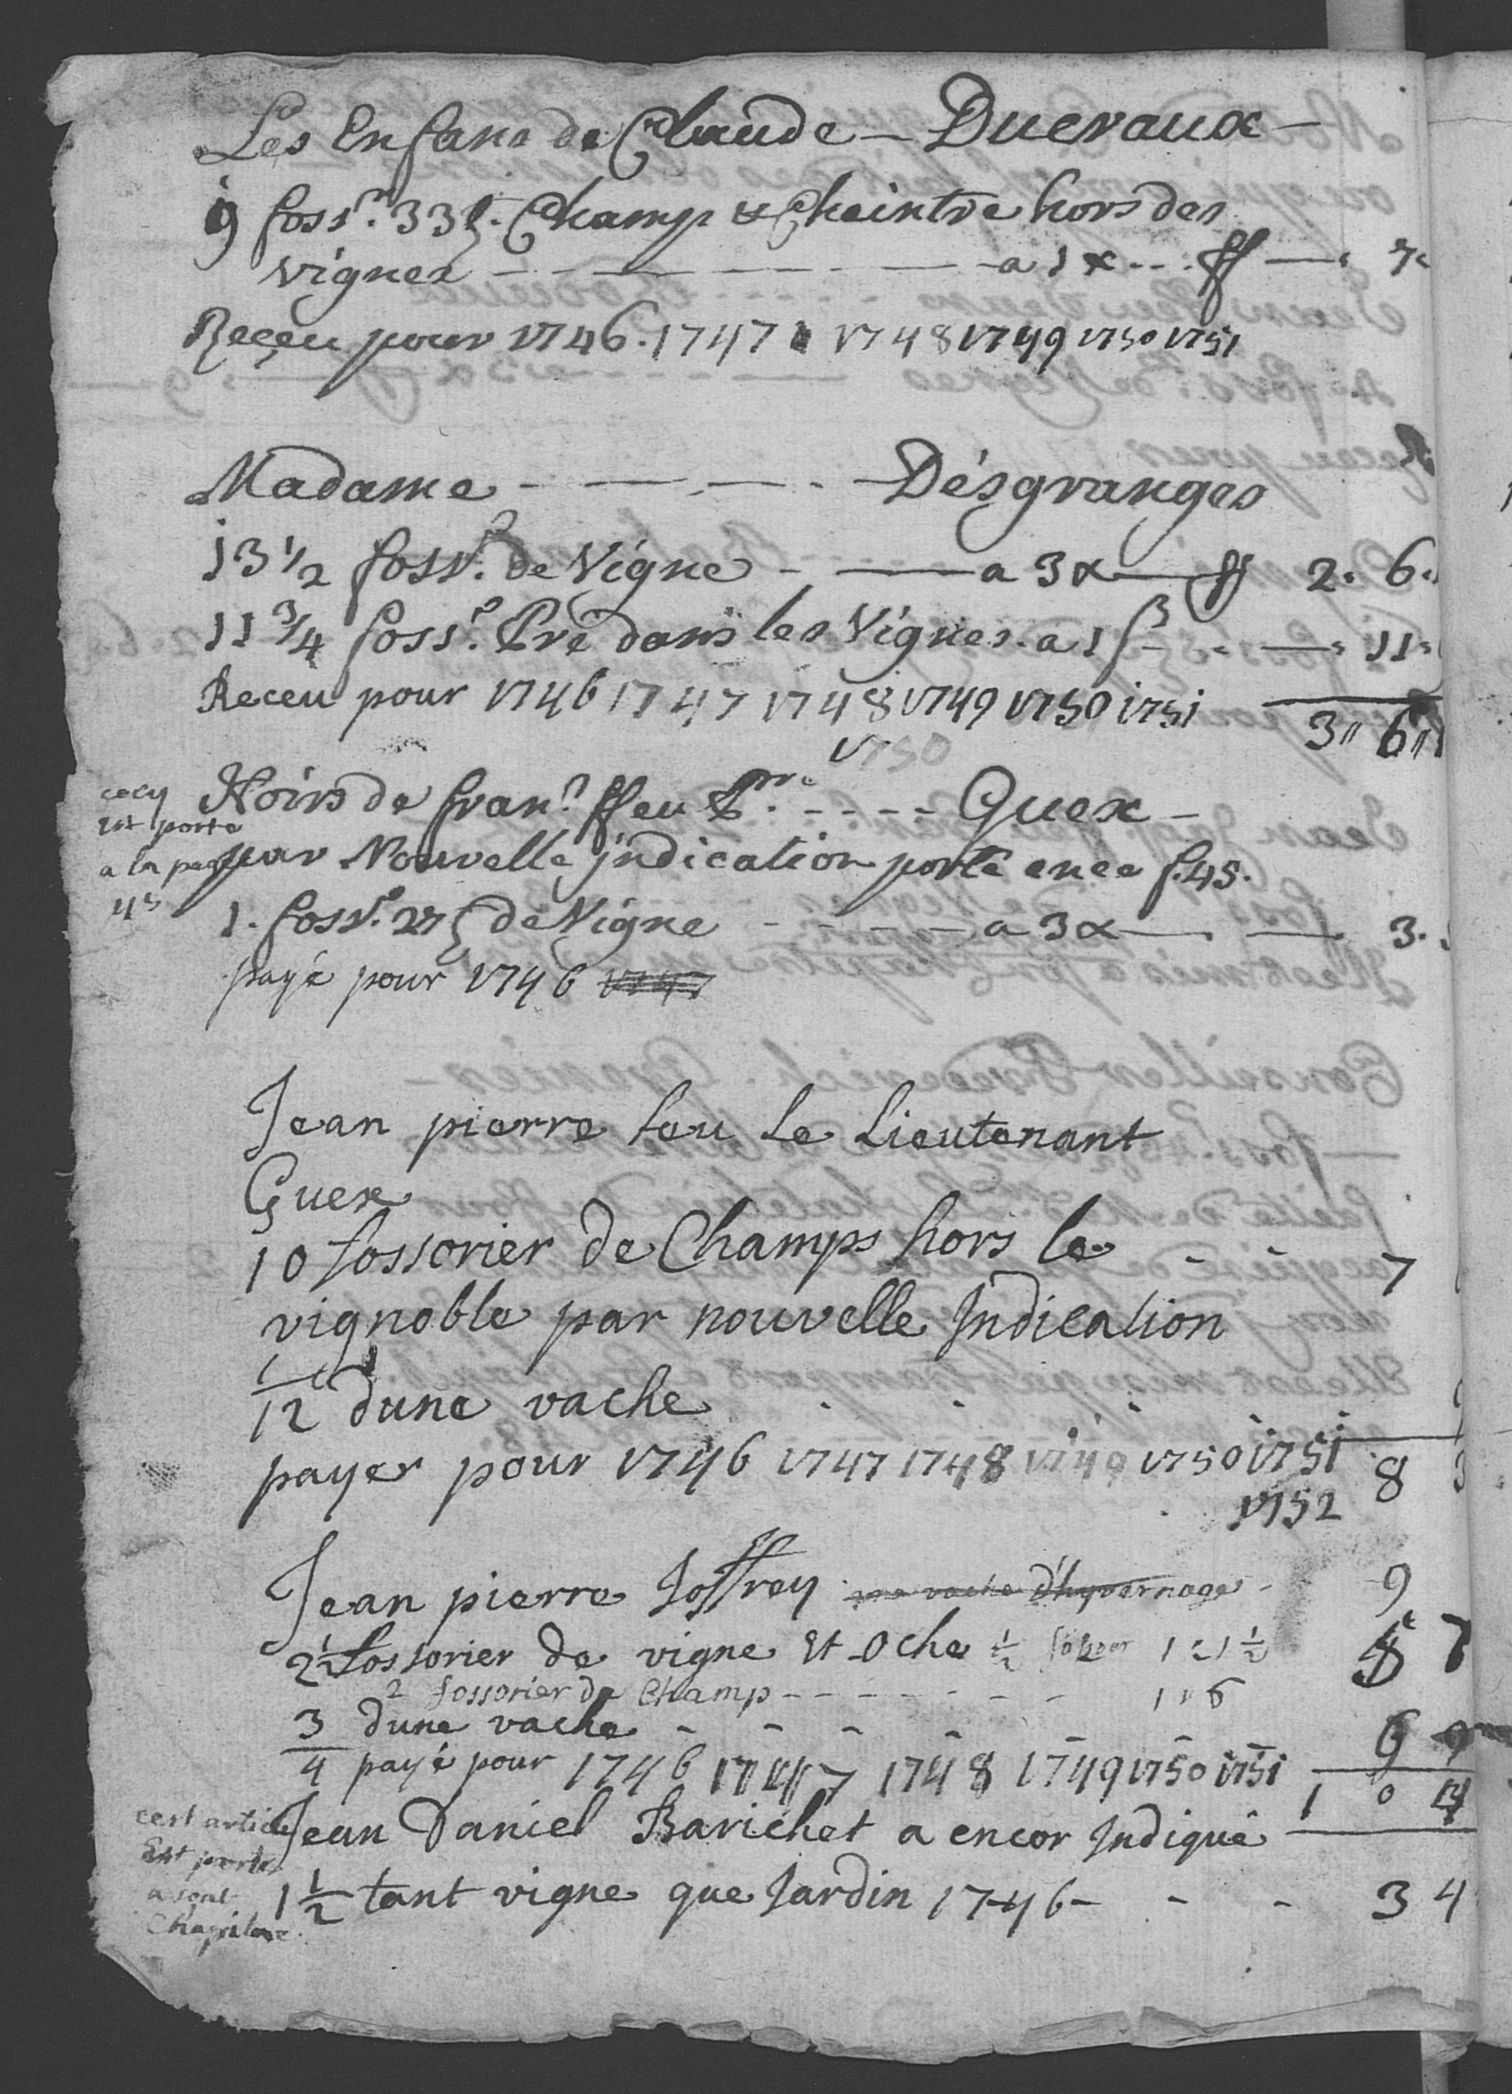 Les Enfans de Claude — Dueraux —
9 foss.r 33 t. Champ & Cheintre hors des
vignes — — — — — a 1 x - - . ff — 7
Receu pour 1746. 1747 1748 1749 1750 1751
Madame - — . — . - Désgranges
13 1/2 foss.r de Vigne - — a 3 x — ff 2. 6.
11 3/4 foss.r Pré dans les Vignes. a 1 ß - - — 11
Receu pour 1746 1747 1748 1749 1750 1751
3 " 6 "
1750
Hoirs de fran.s ffeu - - - - Guex -
par Nouvelle jndication porté en ce f. 45.
cecy
Est porte
a la page
45
1. foss.r 27 de Vigne - - - - a 3 x — . — 3.
payé pour 1746 1747
Jean pierre feu Le Lieutenant
Guex
10 fossorier de Champs hors le - - 7
vignoble par nouvelle Indication
1/12 dune vache . . . .
payer pour 1746 1747 1748 1749 1750 1751 8
1752
Jean pierre Joffrey une vache d'hyvernage - 9
2 1/2 fossorier de vigne Et Oche 1/2 1 : 1 1/2 8
2 fossorier de Champ - - - - - - 1 " 6
3/4 dune vache - - - - - - 6 9
payé pour 1746 1747 1748 1749 1750 1751
1 0 4
Jean Daniel Barichet a encor Indiqué
1 1/2 tant vigne que Jardin 1746 - - - 3 4
cest article
Est porte
a sont
Chapitre